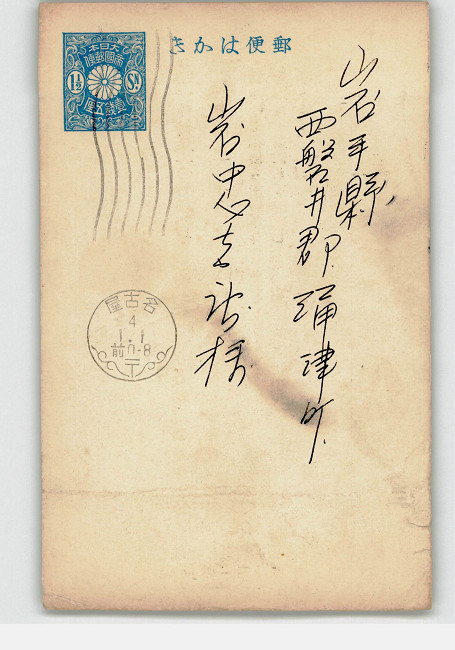 郵便はかき
大日本
帝國郵便
1½
Sn.
壹錢五厘
岩手縣
西磐井郡涌津町
岩中
様
名古屋
4
1.1
前0-8